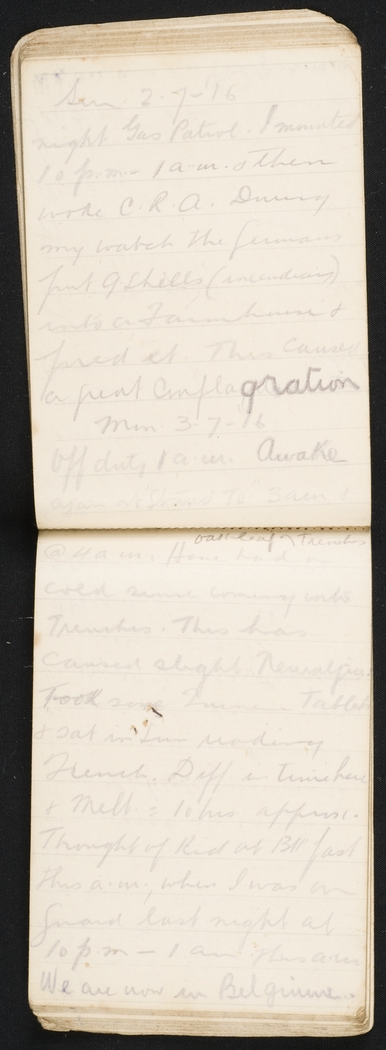 Sun. 2-7-16
night Gas Patrol. I mounted
10 p.m. - 1 a.m. & then
woke C.R.A. During
my watch the Germans
put 9 Shells (incendiary)
into a Farmhouse &
fired it. This caused
a great Conflagration
Mon 3-7-16
Off duty 1 a.m. Awake
again at "Stand To" 3 am &
@ 4 a.m. Have had a
cold since coming into
Trenches. This has
caused slight Neuralgia.
Took some Tablets
& sat in Sun reading
French. Diff in time here
& Melb. = 10 hrs approx.
Thought of Kid at Bkfast
this a.m., when I was on
Guard last night at
10 p.m - 1 am this a.m
We are now in Belgium.